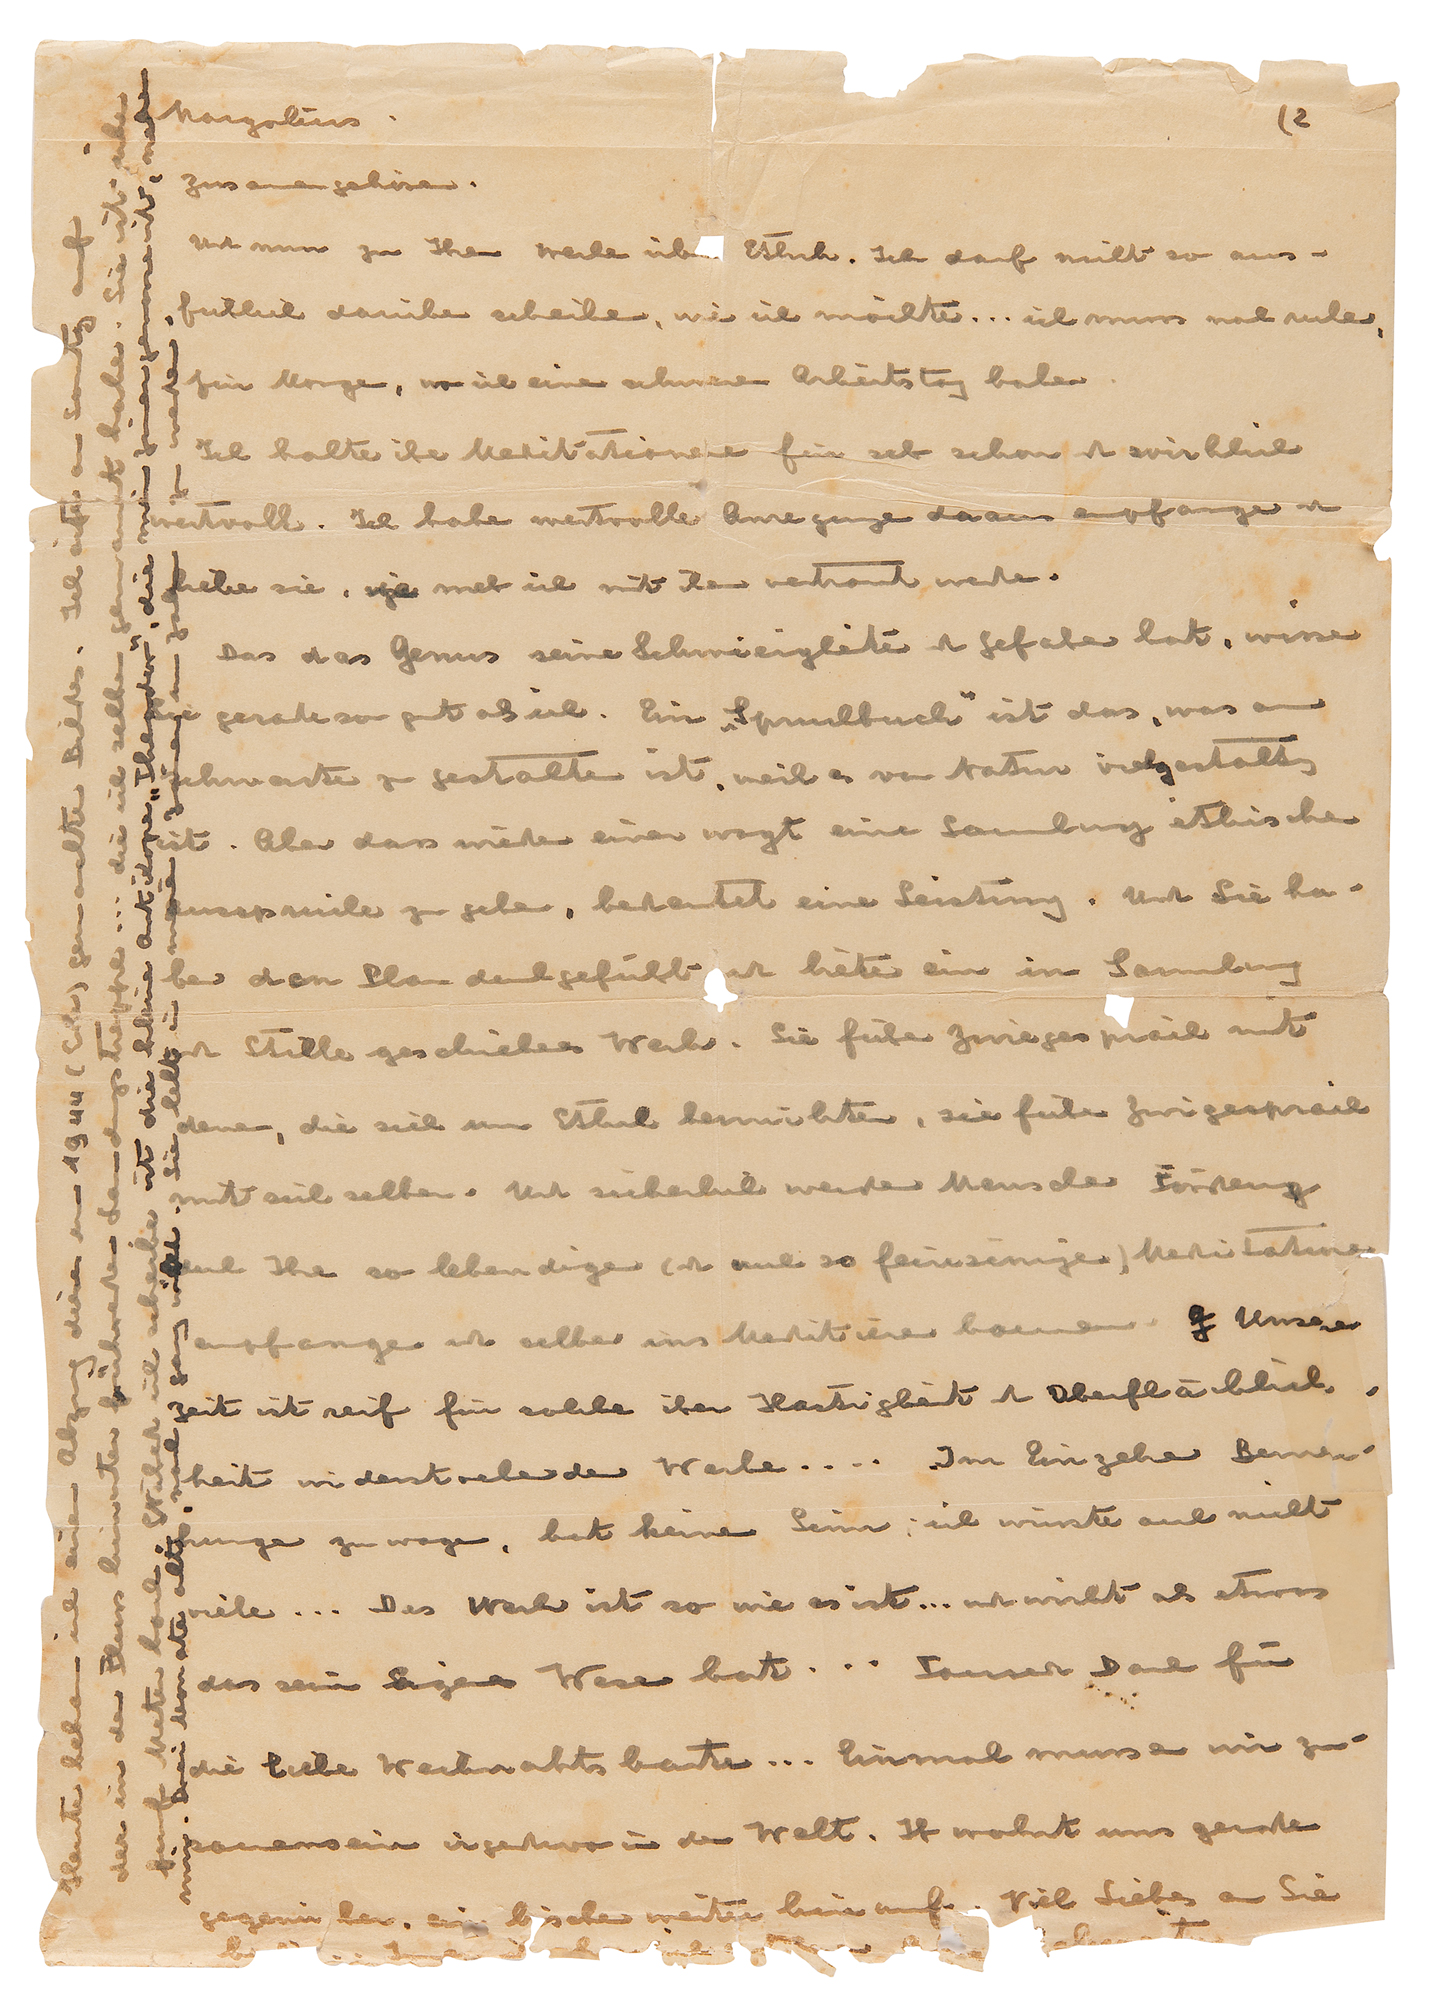 Margolius.
(2
zusammengehören.
Und nun zu Ihrem Werke über Ethik. Ich darf nicht so aus-
führlich darüber schreiben, wie ich möchte... ich muss noch ruhen,
für Morgen, wo ich einen schweren Arbeitstag habe.
Ich halte ihre Meditationen für sehr schön und wirklich
wertvoll. Ich habe wertvolle Anregungen daraus empfangen und
liebe sie, je mehr ich mit ihnen vertraut werde.
Das das Genus seine Schwierigkeiten und Gefahren hat, wissen
Sie geradeso gut als ich. Ein „Spruchbuch" ist das, was am
schwersten zu gestalten ist, weil es von Natur vielgestaltig
ist. Aber dass wieder einer wagt eine Sammlung ethischer
Aussprüche zu geben, bedeutet eine Leistung. Und Sie ha-
ben den Plan durchgeführt und bieten ein in Sammlung
und Stille geschriebenes Werk. Sie führen Zwiegespräch mit
denen, die sich um Ethik bemühten, sie führen Zwigespräch
mit sich selber. Und sicherlich werden Menschen Förderung
durch Ihre so lebendigen (und auch so feinsinnigen) Meditationen
empfangen und selber ins Meditieren kommen. Unsere
Zeit ist reif für solche ihrer Hastigkeit und Oberflächlich-
keit widerstrebenden Werke.... Im Einzelnen Bemer-
kungen zu wagen, hat keinen Sinn; ich wüsste auch nicht
viele... Das Werk ist so wie es ist... und wirkt als etwas
das sein Eigenes Wesen hat... Tausend Dank für
die liebe Weihnachtskarte... Einmal mussen wir zu-
sammensein irgendwo in der Welt. If wohnt uns gerade
gegenüber, ein bischen weiter hinauf. Viel Liebes an Sie
Heute bekam ich einen Abzug dieses in 1944 (Ende) gemachten Bildes. Ich sitze am Sonntag auf
der in den Fluss hinunter führenden Landungstreppe... die ich selber gemacht habe. Sie ist nahe
fünf Meter hoch. Neben ich schreibe ist die kleine Antilope „Theodor", die mein Zimmergenosse ist, neben
mir. Drei Monate alt und ganz wild. Sie lebt in meinem Zimmer um zahm zu werden.